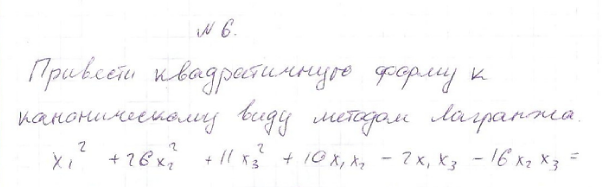 № 6.
Привести квадратичную форму к
каноническому виду методом Лагранжа.
x₁² + 26x₂² + 11x₃² + 10x₁x₂ - 2x₁x₃ - 16x₂x₃ =